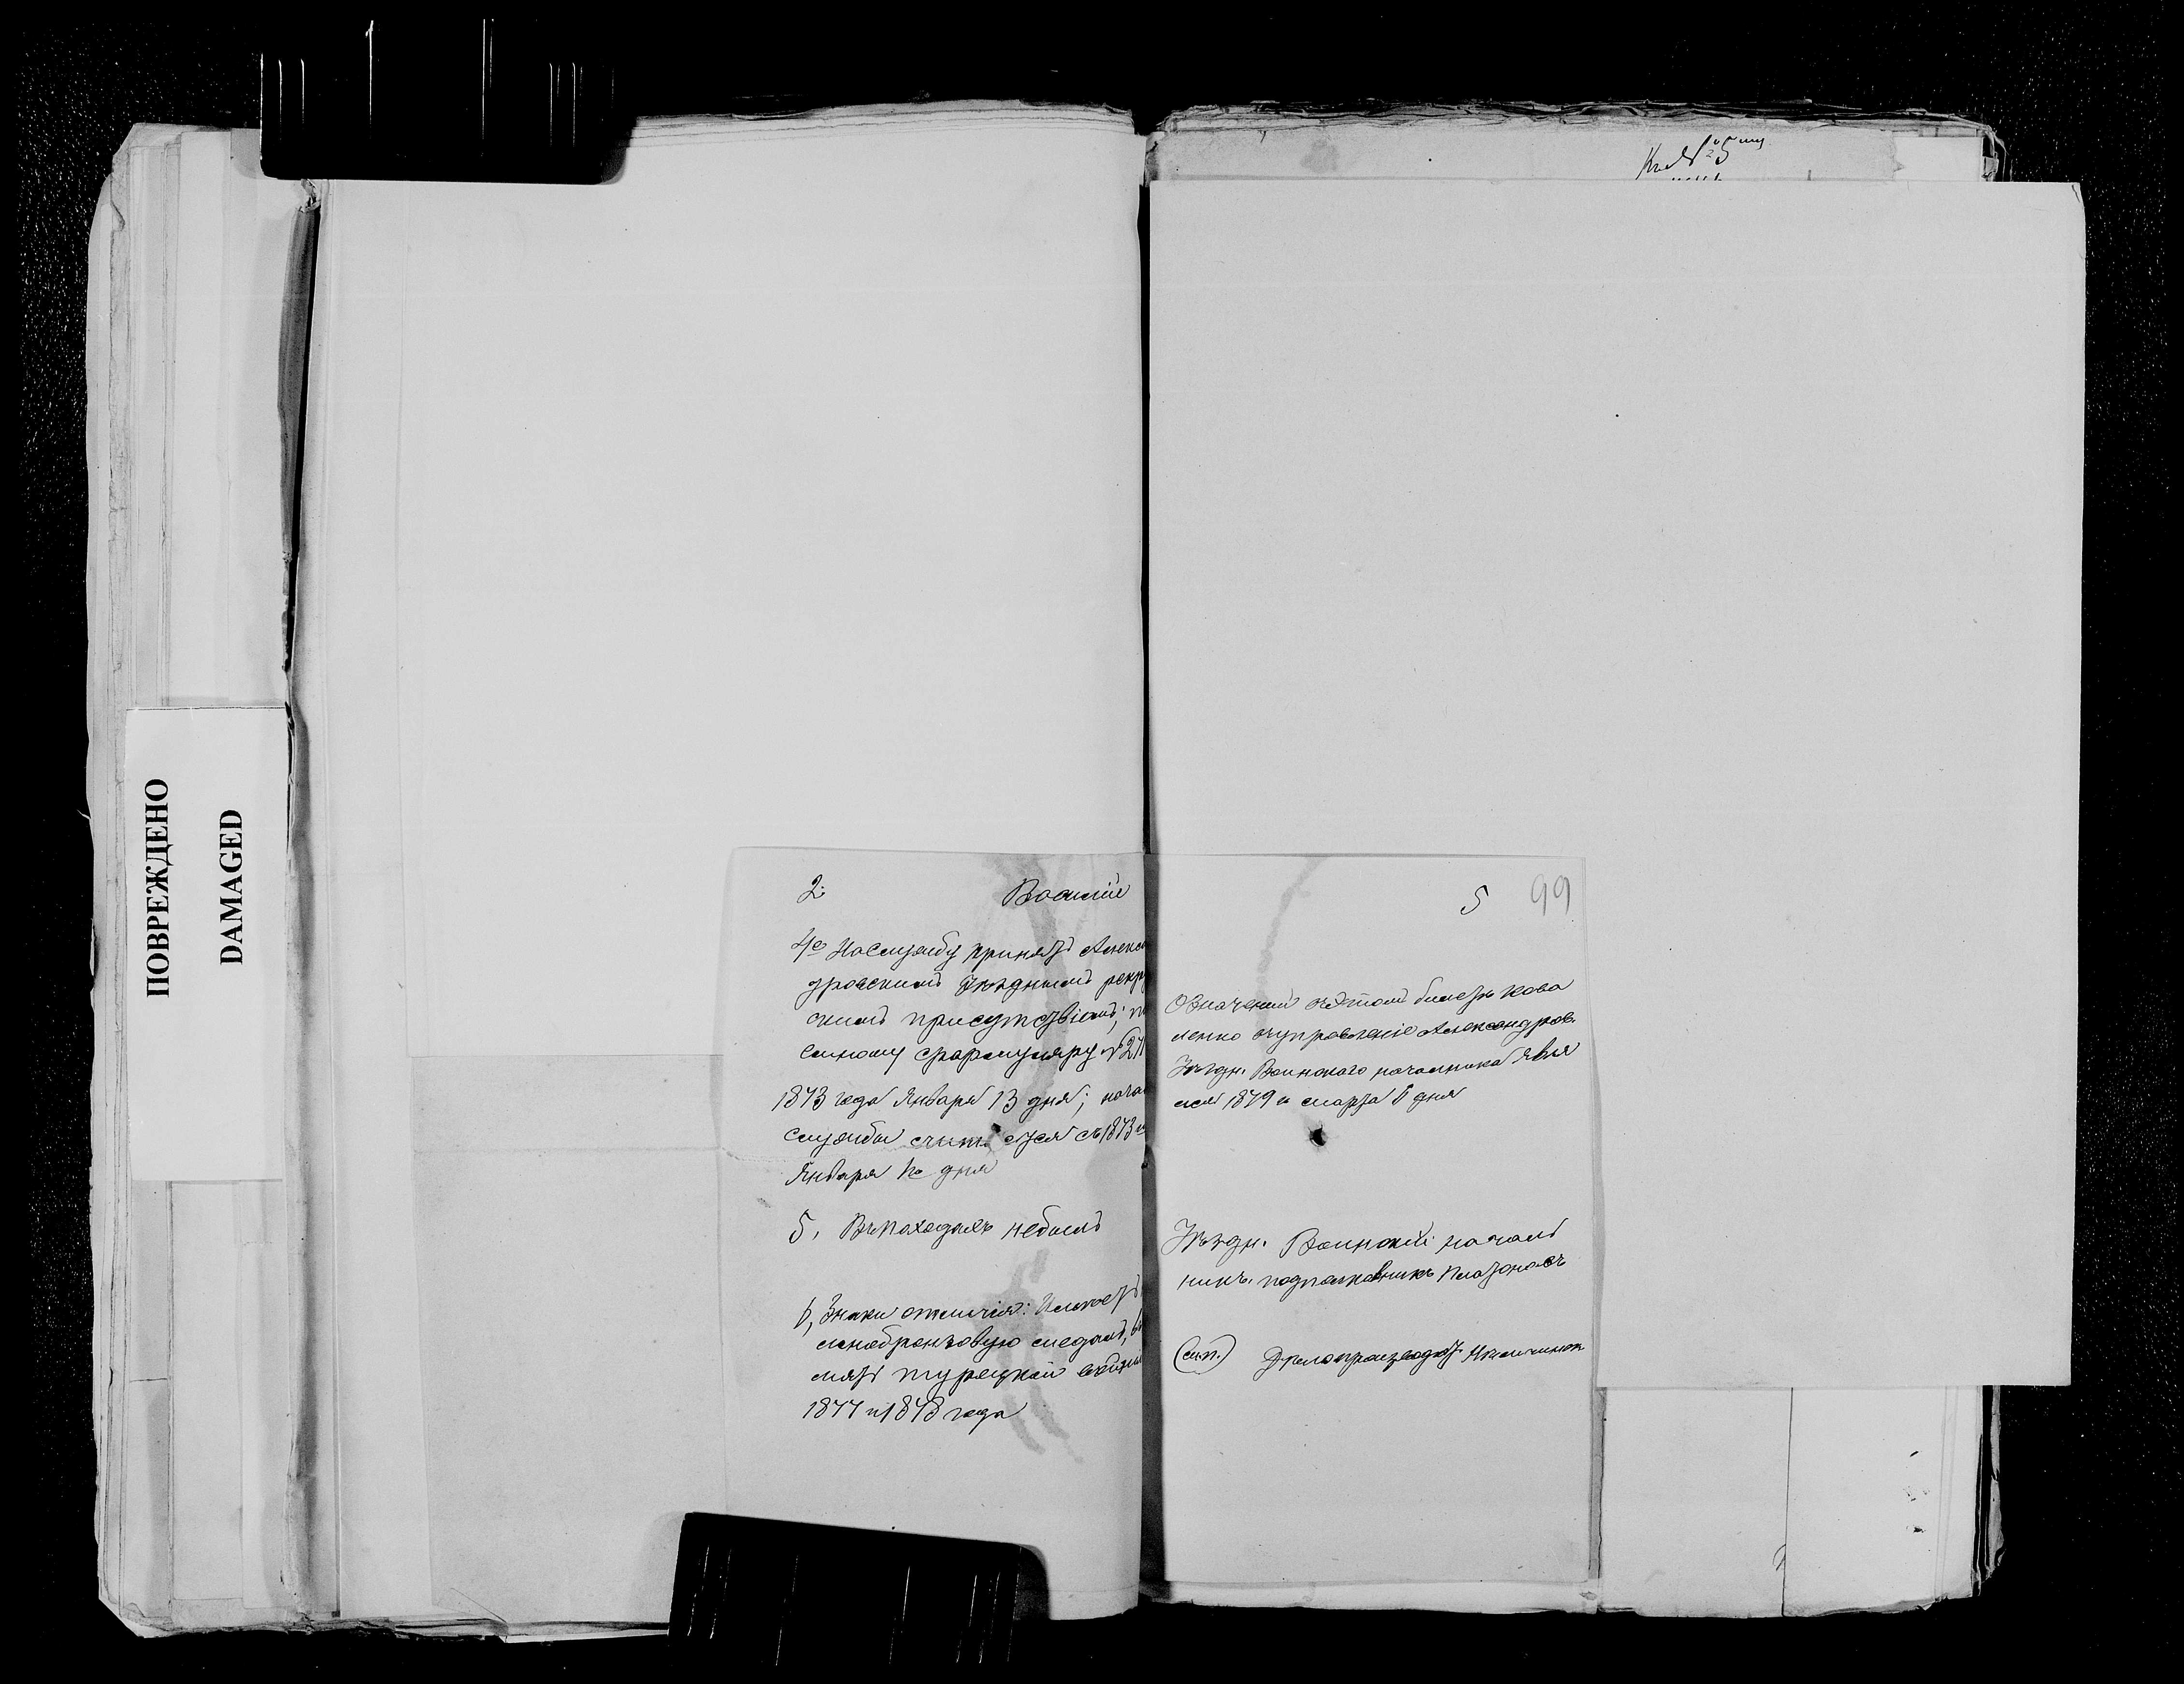 ПОВРЕЖДЕНО
DAMAGED
2.
4е На службу принятъ Алекса
дровскимъ Уѣзднымъ рекру
скимъ присутствіемъ;
емному формуляру №
1873 года Января 13 дня; начал
службы считается съ 1873
Января 1го дня
5, Въ походахъ небылъ
6, Знаки отличія: Имѣетъ
лнобронзовую медаль, въ
мять турецкой войны
1877 и 1878 года
5 99
Означенный въ этомъ билетѣ Кова
ленко въ управленіе Александров.
Уѣздн. Воинскаго начальника явил
ся 1879 г. марта 6 дня
Уѣздн. Воинскій началь
никъ, подполковникъ Платоновъ
(м.п.) Дѣлопроизводит.